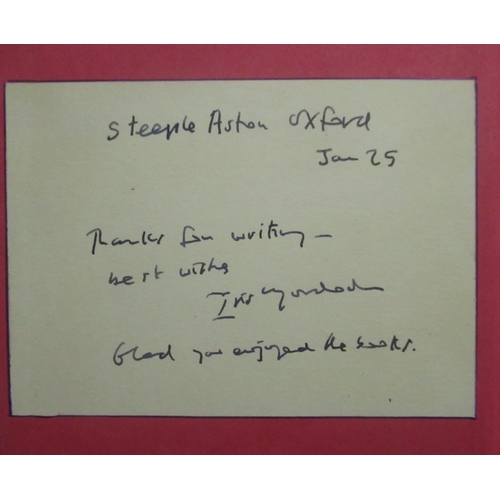 Steeple Aston Oxford
Jan 25
Thanks for writing –
best wishes
Iris Murdoch
Glad you enjoyed the books.